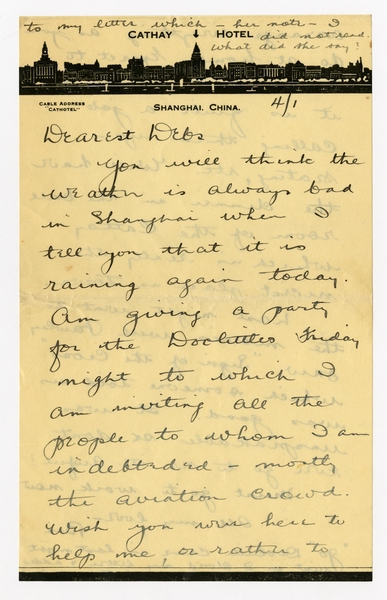 to my letter which - her note - I
did not read.
What did she say?
CATHAY HOTEL
CABLE ADDRESS
"CATHOTEL"
SHANGHAI, CHINA.
4/1
Dearest Debs
You will think the
weather is always bad
in Shanghai when I
tell you that it is
raining again today.
Am giving a party
for the Doolittles Friday
night to which I
am inviting all the
people to whom I am
indebtded - mostly
the aviation crowd.
Wish you were here to
help me, or rather to